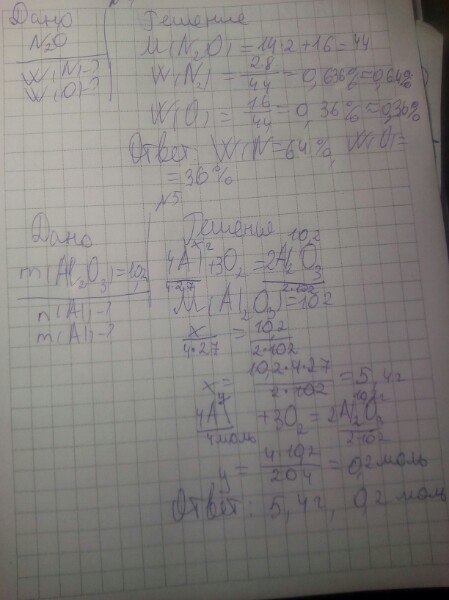 Дано
N₂O
W(N)-?
W(O)-?
Решение
M(N₂O)=14·2+16=44
W(N)=28/44=0,636%=0,64%
W(O)=16/44=0,36%=0,36%
Ответ: W(N)=64%, W(O)=
=36%
№5
Дано
m(Al₂O₃)=10,2
n(Al)-?
m(Al)-?
Решение
x г 10,2
4Al+3O₂=2Al₂O₃
4·27 2·102
M(Al₂O₃)=102
x/4·27=10,2/2·102
x=10,2·4·27/2·102=5,4г
y 10,2
4Al+3O₂=2Al₂O₃
4моль 2·102
y=4·10,2/204=0,2моль
Ответ: 5,4г, 0,2 моль